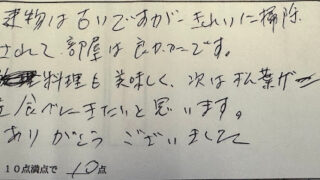 建物は古いですがきれいに掃除
されて部屋は良かったです。
料理も美味しく、次は松葉がに
を食べにきたいと思います。
ありがとうございました
10点満点で 10点